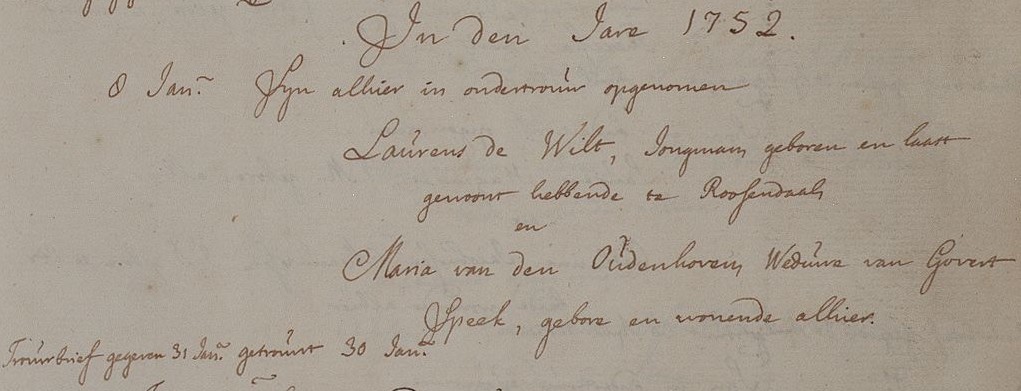 In den Jare 1752.
8 Jan. Syn alhier in ondertrouw opgenomen
Laurens de Wilt, Jongman geboren en laast
gewoont hebbende te Roosendaal
en
Maria van den Oudenhoven, Weduwe van Govert
Speek, gebore en wonende alhier.
Trouwbrief gegeven 31 Jan. getrouwt 30 Jan.